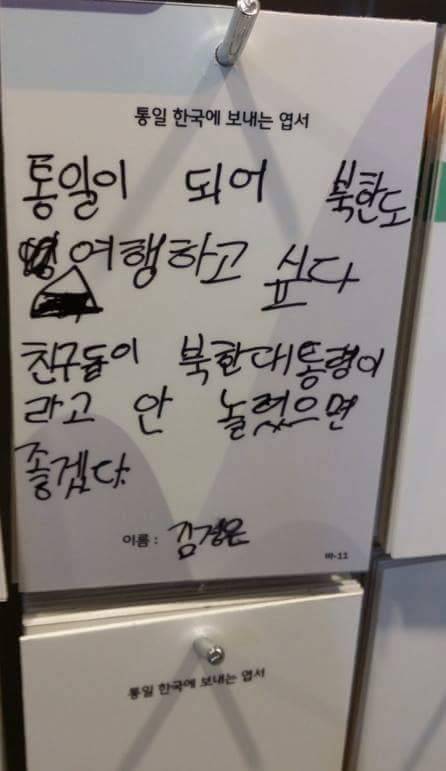 통일 한국에 보내는 엽서
통일이 되어 북한도
여행하고 싶다
친구들이 북한대통령이
라고 안 놀렸으면
좋겠다.
이름 : 김정은
바-11
통일 한국에 보내는 엽서